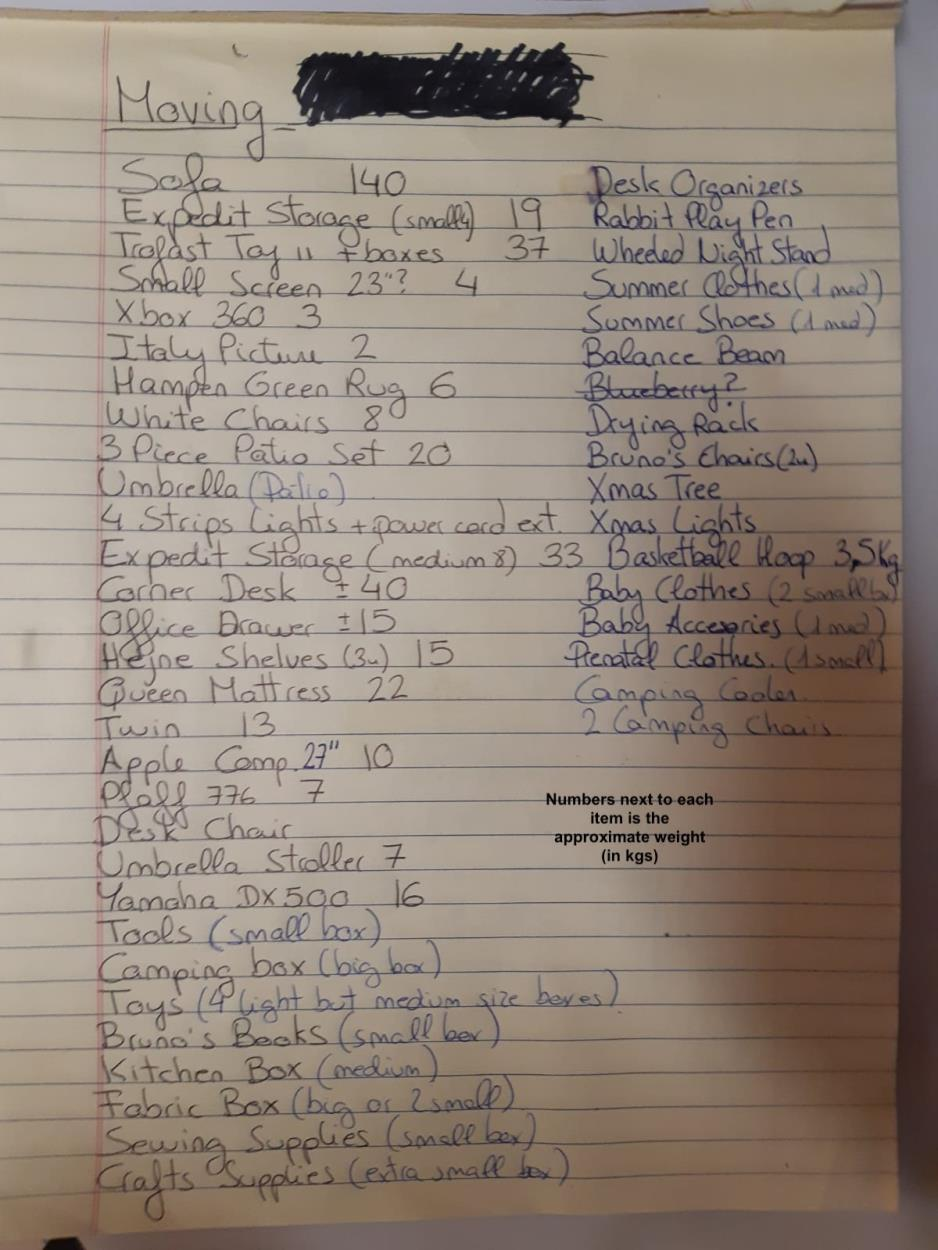 Moving -
Sofa 140
Expedit Storage (small4) 19
Trofast Toy " + boxes 37
Small Screen 23"? 4
Xbox 360 3
Italy Picture 2
Hampen Green Rug 6
White Chairs 8
3 Piece Patio Set 20
Umbrella (Patio)
4 Strips Lights + power cord ext.
Expedit Storage (medium 8) 33
Corner Desk ± 40
Office Drawer ± 15
Hejne Shelves (3u) 15
Queen Mattress 22
Twin 13
Apple Comp. 27" 10
Pfaff 776 7
Desk Chair
Umbrella Stroller 7
Yamaha DX500 16
Tools (small box)
Camping box (big box)
Toys (4 light but medium size boxes)
Bruno's Books (small box)
Kitchen Box (medium)
Fabric Box (big or 2 small)
Sewing Supplies (small box)
Crafts Supplies (extra small box)
Desk Organizers
Rabbit Play Pen
Wheeled Night Stand
Summer Clothes (1 med)
Summer Shoes (1 med)
Balance Beam
Blueberry?
Drying Rack
Bruno's Chairs (2u)
Xmas Tree
Xmas Lights
Basketball Hoop 3,5Kg
Baby Clothes (2 small bx)
Baby Accesories (1 med)
Prenatal Clothes. (1 small)
Camping Cooler
2 Camping Chairs
Numbers next to each
item is the
approximate weight
(in kgs)